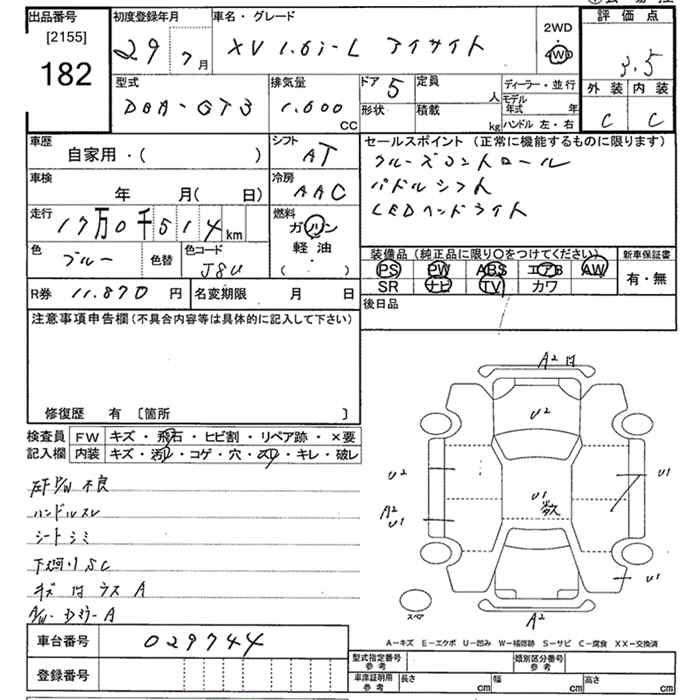 出品番号
[2155]
182
初度登録年月
29 7月
車名・グレード
XV 1.6i-L アイサイト
2WD
4WD
評価点
3.5
外装 内装
C C
型式
DBA-GT3
排気量
1.600
CC
ドア 5
形状
定員 人
積載 kg
ディーラー・並行
モデル年式 年
ハンドル 左・右
車歴
自家用・( )
シフト
AT
セールスポイント (正常に機能するものに限ります)
クルーズコントロール
パドルシフト
LEDヘッドライト
車検
年 月( 日)
冷房
AAC
走行
17万0千514km
燃料
ガソリン
軽油
( )
色
ブルー
色替
色コード
J8U
装備品 (純正品に限り○をつけてください) 新車保証書
PS PW ABS エアB AW
SR ナビ TV カワ
有・無
R券 11.870 円
名変期限 月 日
後日品
注意事項申告欄 (不具合内容等は具体的に記入して下さい)
修復歴 有 [箇所 ]
検査員記入欄
FW キズ・飛石・ヒビ割・リペア跡・×要
内装 キズ・汚レ・コゲ・穴・スレ・キレ・破レ
P/W 不良
ハンドルスレ
シートシミ
下廻りSC
キズ
A
A2
U2
U2
U1
U1
A2
U1
U1
スペア
A2
A-キズ E-エクボ U-凹み W-補修跡 S-サビ C-腐食 XX-交換済
車台番号 029744
登録番号
型式指定番号 参考
類別区分番号 参考
車庫証明用 参考
長さ cm 幅 cm 高さ cm